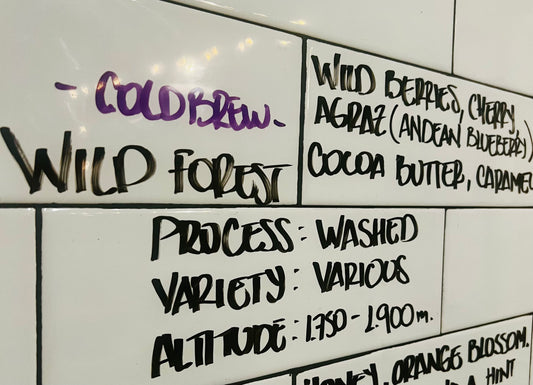 - COLDBREW -
WILD FOREST
WILD BERRIES, CHERRY,
AGRAZ (ANDEAN BLUEBERRY)
COCOA BUTTER, CARAMEL
PROCESS: WASHED
VARIETY: VARIOUS
ALTITUDE: 1.750 - 1.900 m.
HONEY, ORANGE BLOSSOM.
A HINT